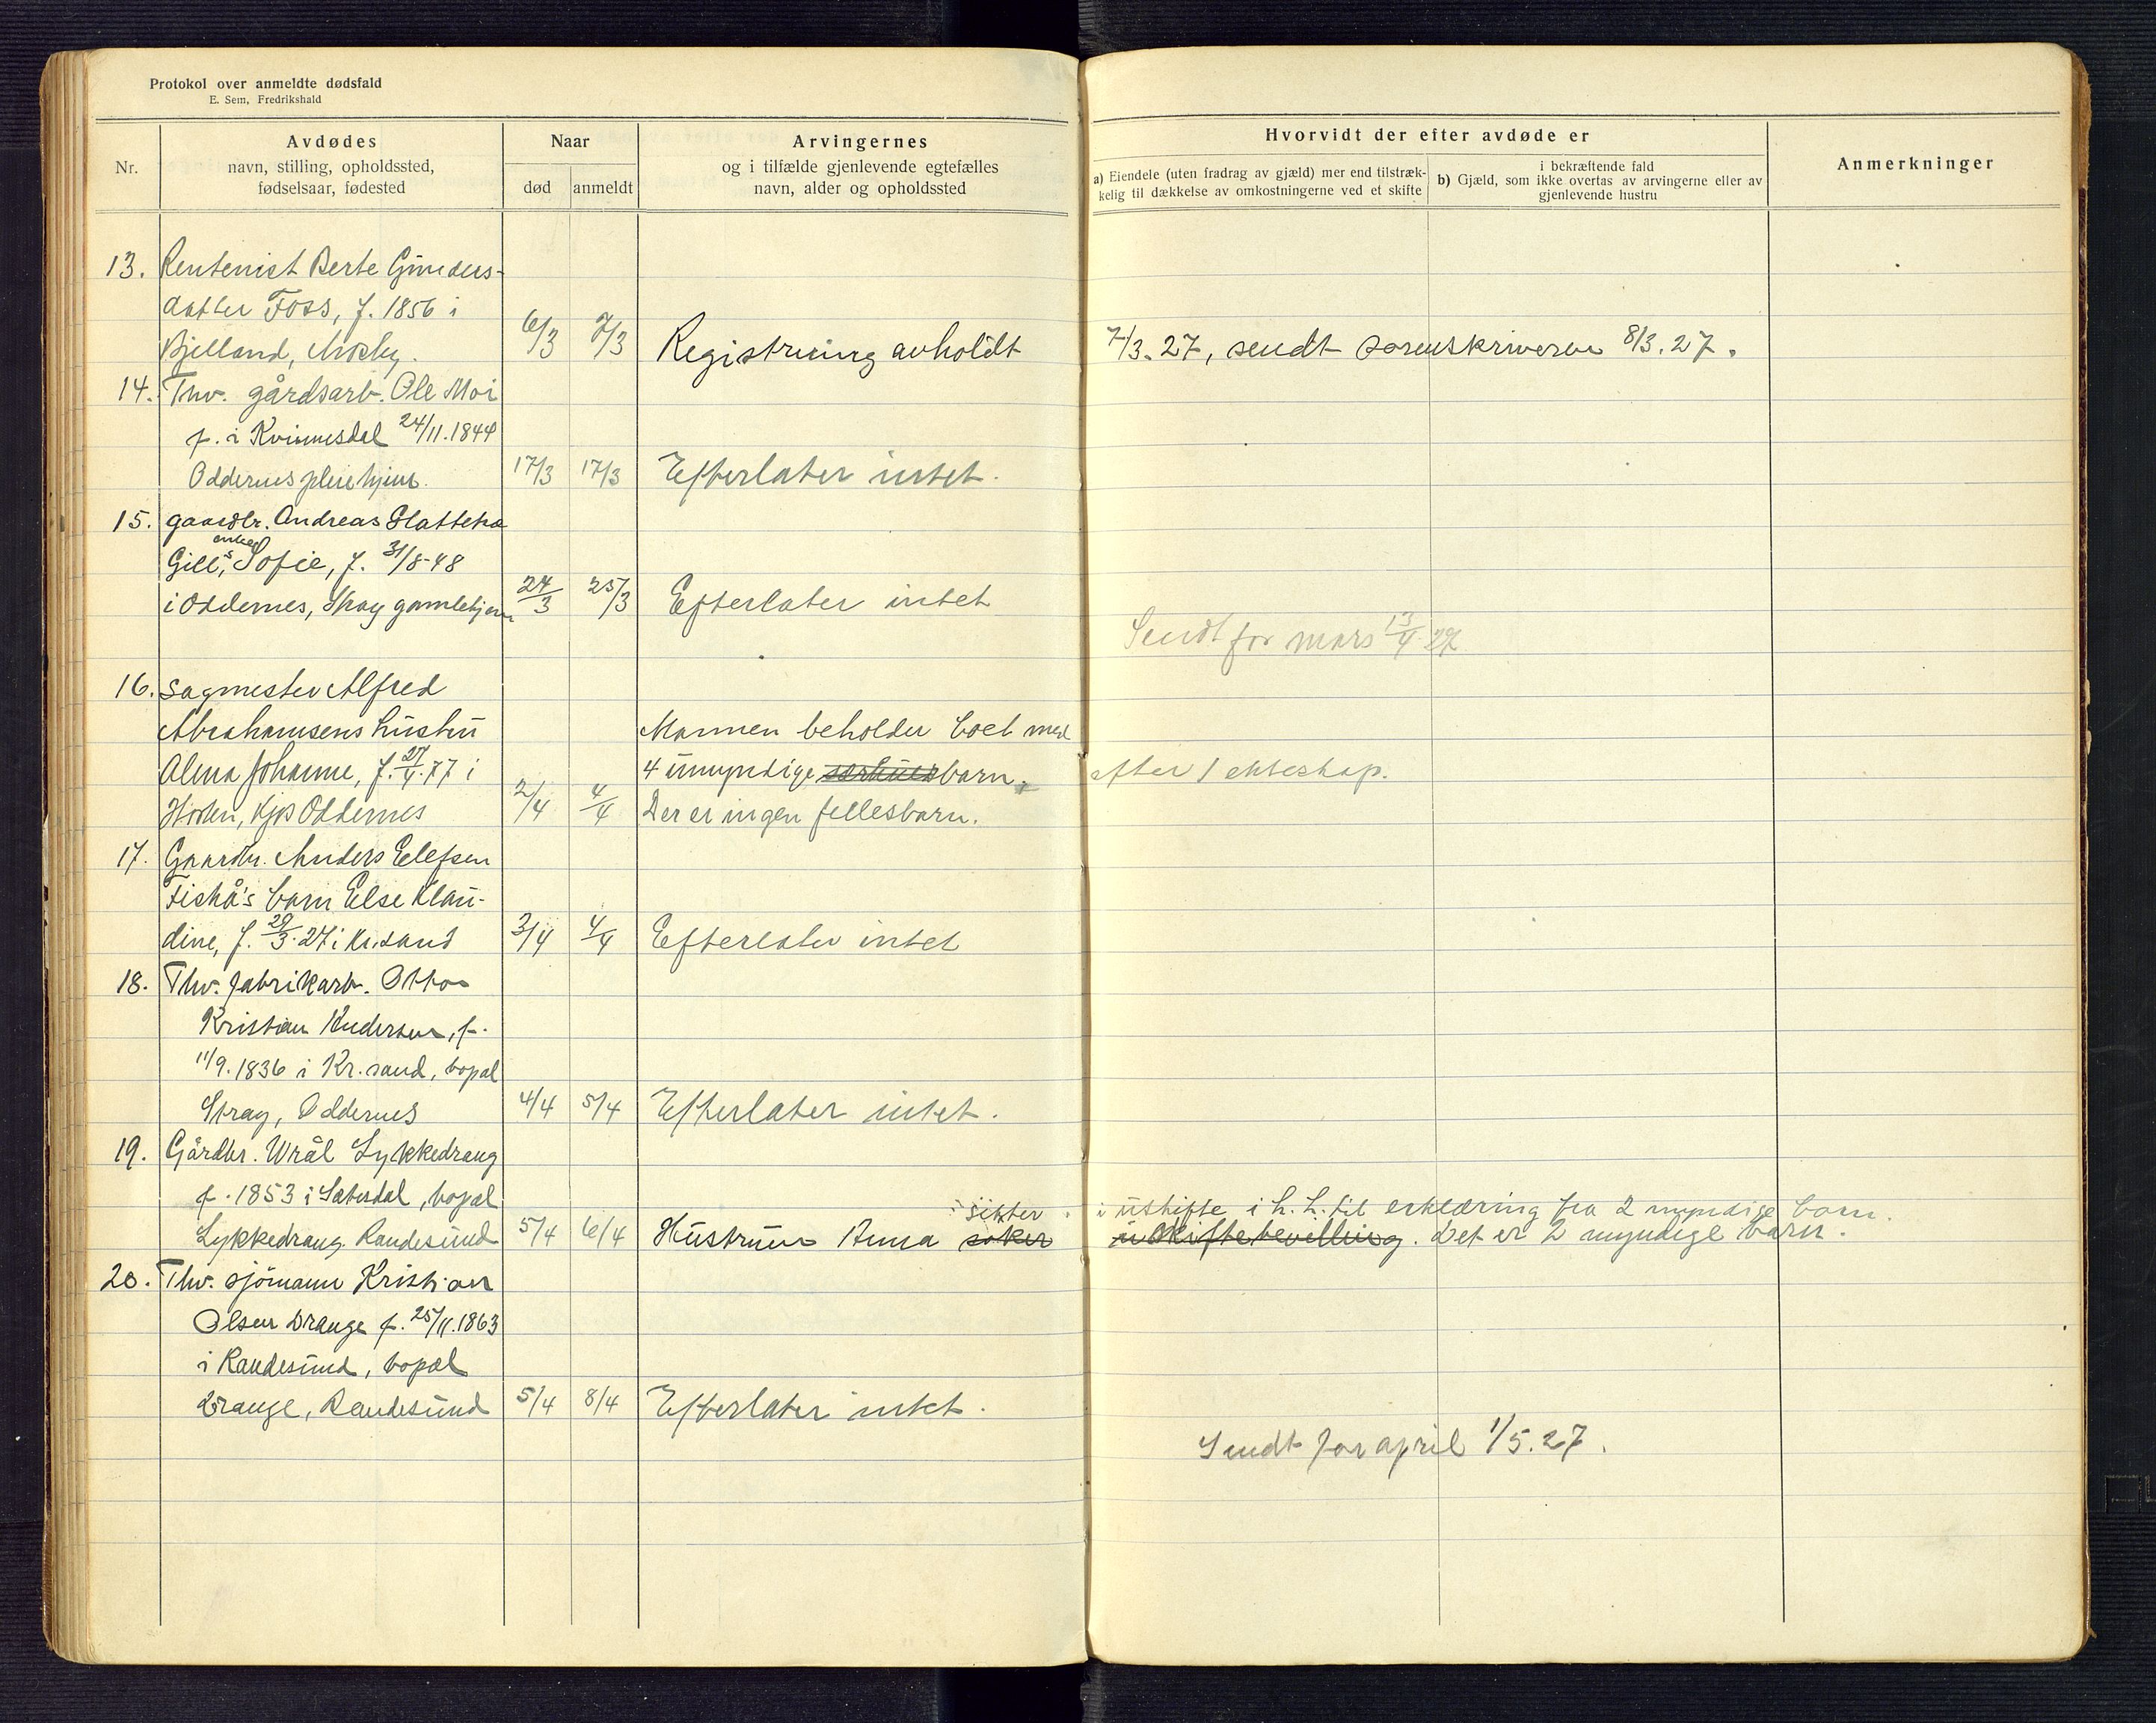 Protokol over anmeldte dødsfald
E. Sem, Fredrikshald
Nr.
Avdødes
navn, stilling, opholdssted,
fødselsaar, fødested
Naar
død
anmeldt
Arvingernes
og i tilfælde gjenlevende egtefælles
navn, alder og opholdssted
Hvorvidt der efter avdøde er
a) Eiendele (uten fradrag av gjæld) mer end tilstræk-
kelig til dækkelse av omkostningerne ved et skifte
i bekræftende fald
b) Gjæld, som ikke overtas av arvingerne eller av
gjenlevende hustru
Anmerkninger
13. Rentenist Berte Gunders-
datter Foss, f. 1856 i
Bjelland, Mosby. 6/3 7/3 Registrering avholdt 7/3. 27, sendt sorenskriveren 8/3. 27.
14. Thv. gårdsarb. Ole Moi
f. i Kvinnesdal 24/11. 1844
Oddernes pleiehjem. 17/3 17/3 Efterlater intet.
15. gaardbr. Andreas Slattebø
enke
Gill's, Sofie, f. 31/8-48
i Oddernes, Stray gamlehjem 24/3 25/3 Efterlater intet
Sendt for mars 13/4 27
16. Sagmester Alfred
Abrahamsens hustru Mannen beholder boet med
Alma Johanne, f. 27/4. 77 i 4 umyndige særkuls barn. efter 1 ekteskap.
Oddernes 2/4 4/4 Der er ingen fellesbarn.
17. Gaardbr. Anders Eelefsen
Fiskå's barn Else Klau-
dine, f. 29/3. 27 i Kr.sand 3/4 4/4 Efterlater intet
18. Thv. fabrikarb. Otto
Kristian Andersen, f.
11/9. 1836 i Kr. sand, bopæl
Stray, Oddernes 4/4 5/4 Efterlater intet.
19. Gårdbr. Wrål Lykkedrang
f. 1853 i Sætesdal, bopæl
sitter i uskifte i h. h. til erklæring fra 2 myndige barn.
Lykkedrang Randesund 5/4 6/4 Hustruen Anna søker uskiftebevilling. Det er 2 myndige barn.
20. Thv. sjömann Kristian
Olsen Drange f. 25/11. 1863
i Randesund, bopæl
Drange, Randesund 5/4 8/4 Efterlater intet.
Sendt for april 1/5. 27.